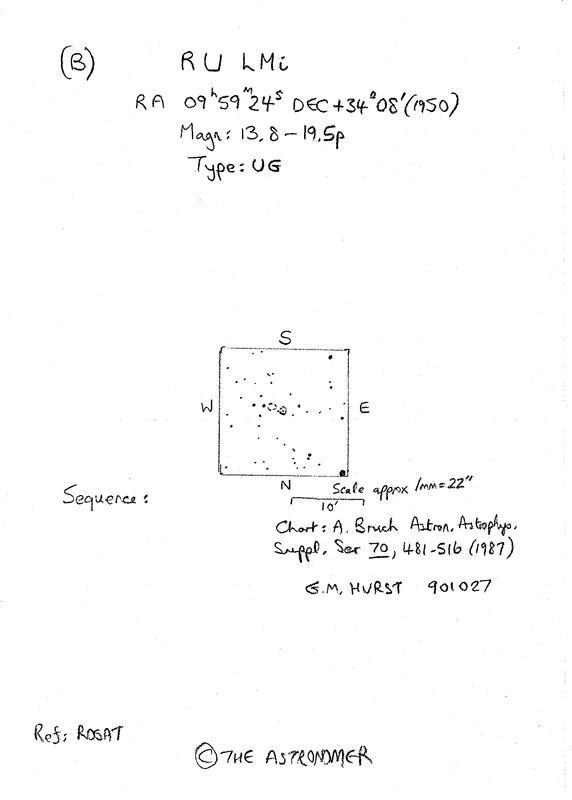 (B) RU LMi
RA 09ʰ59ᵐ24ˢ DEC+34°08'(1950)
Magn: 13.8-19.5p
Type: UG
S
W E
N
Scale approx 1mm=22"
10'
Sequence:
Chart: A. Bruch Astron. Astrophys.
Suppl. Ser 70, 481-516 (1987)
G.M. HURST 901027
Ref: ROSAT
© THE ASTRONOMER